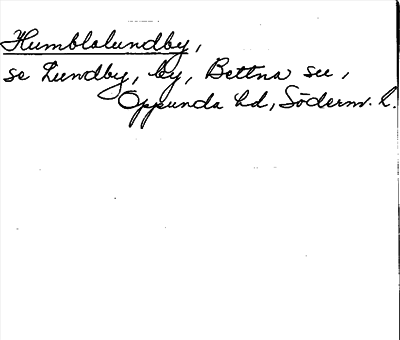 Humblalundby,
se Lundby, by, Bettna sn,
Oppunda hd, Söderm. l.